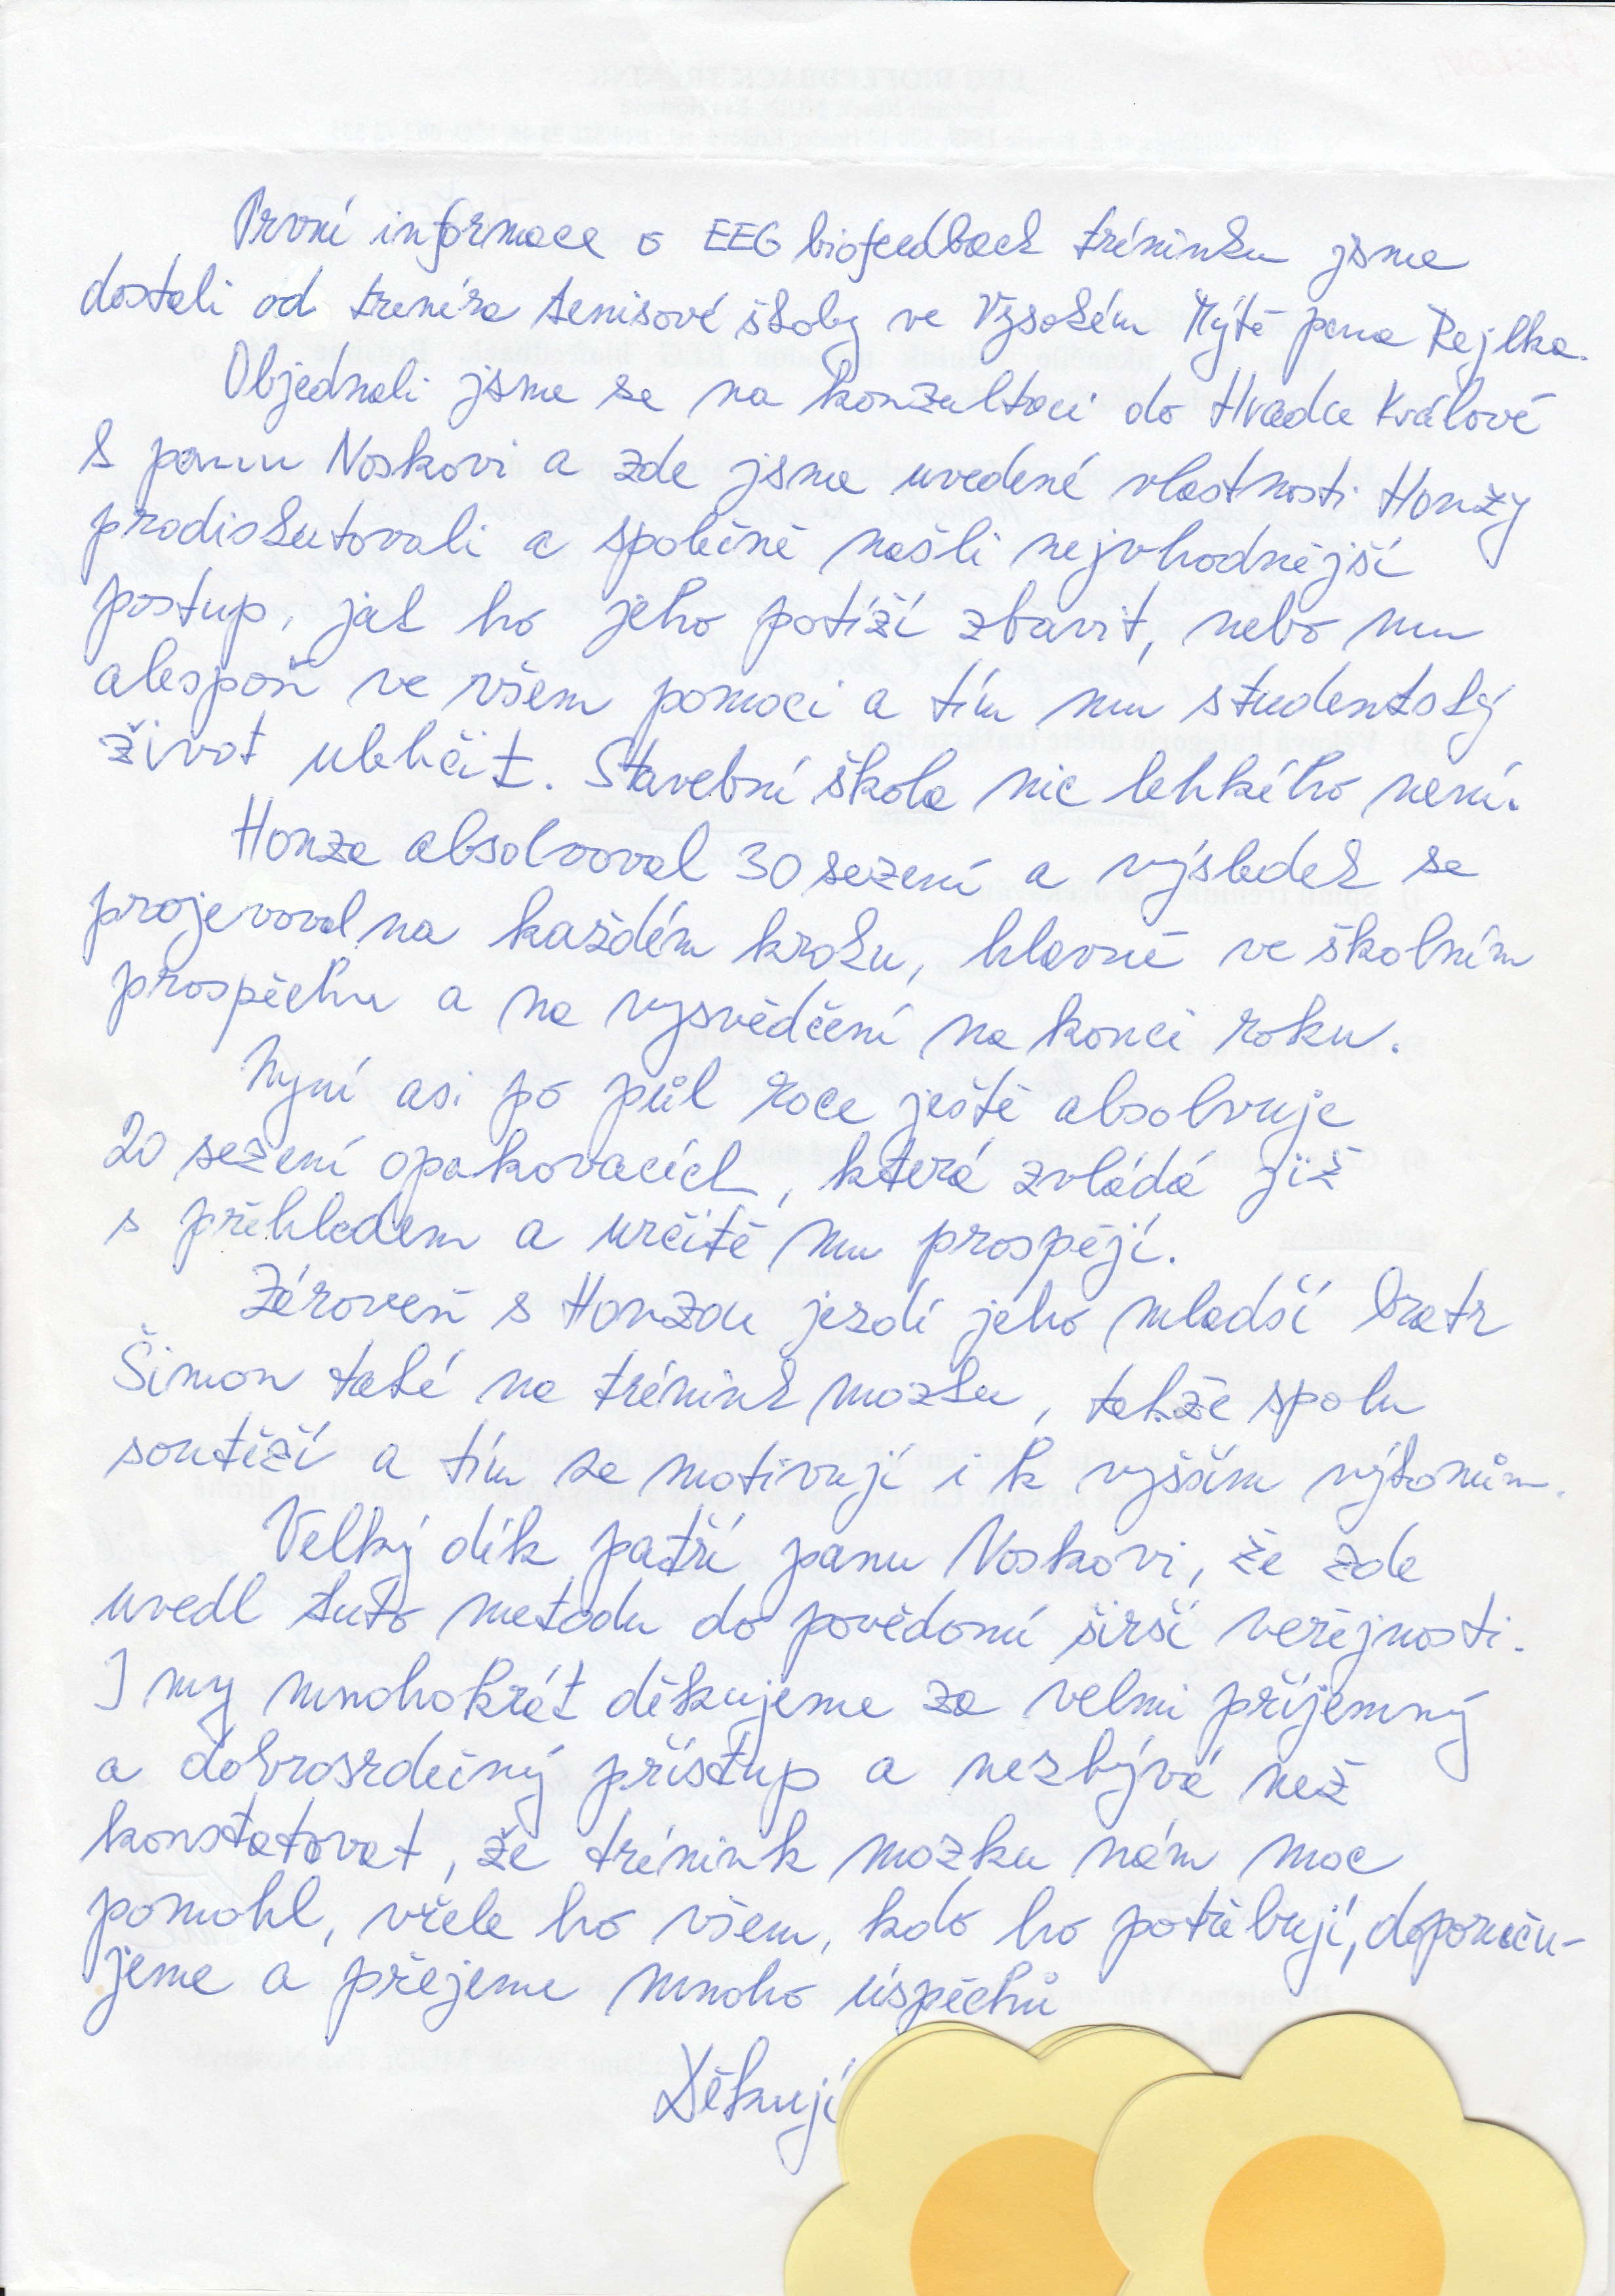 První informace o EEG biofeedback tréninku jsme
dostali od trenéra tenisové školy ve Vysokém Mýtě pana Rejlka.
Objednali jsme se na konzultaci do Hradce Králové
k panu Noskovi a zde jsme uvedené vlastnosti Honzy
prodiskutovali a společně našli nejvhodnější
postup, jak ho jeho potíží zbavit, nebo mu
alespoň ve všem pomoci a tím mu studentský
život ulehčit. Stavební škola nic lehkého není.
Honza absolvoval 30 sezení a výsledek se
projevoval na každém kroku, hlavně ve školním
prospěchu a na vysvědčení na konci roku.
Nyní asi po půl roce ještě absolvuje
20 sezení opakovacích, která zvládá již
s přehledem a určitě mu prospějí.
Zároveň s Honzou jezdí jeho mladší bratr
Šimon také na trénink mozku, takže spolu
soutěží a tím se motivují i k vyšším výkonům.
Velký dík patří panu Noskovi, že zde
uvedl tuto metodu do povědomí širší veřejnosti.
I my mnohokrát děkujeme za velmi příjemný
a dobrosrdečný přístup a nezbývá než
konstatovat, že trénink mozku nám moc
pomohl, vřele ho všem, kdo ho potřebují, doporuču-
jeme a přejeme mnoho úspěchů
Děkují